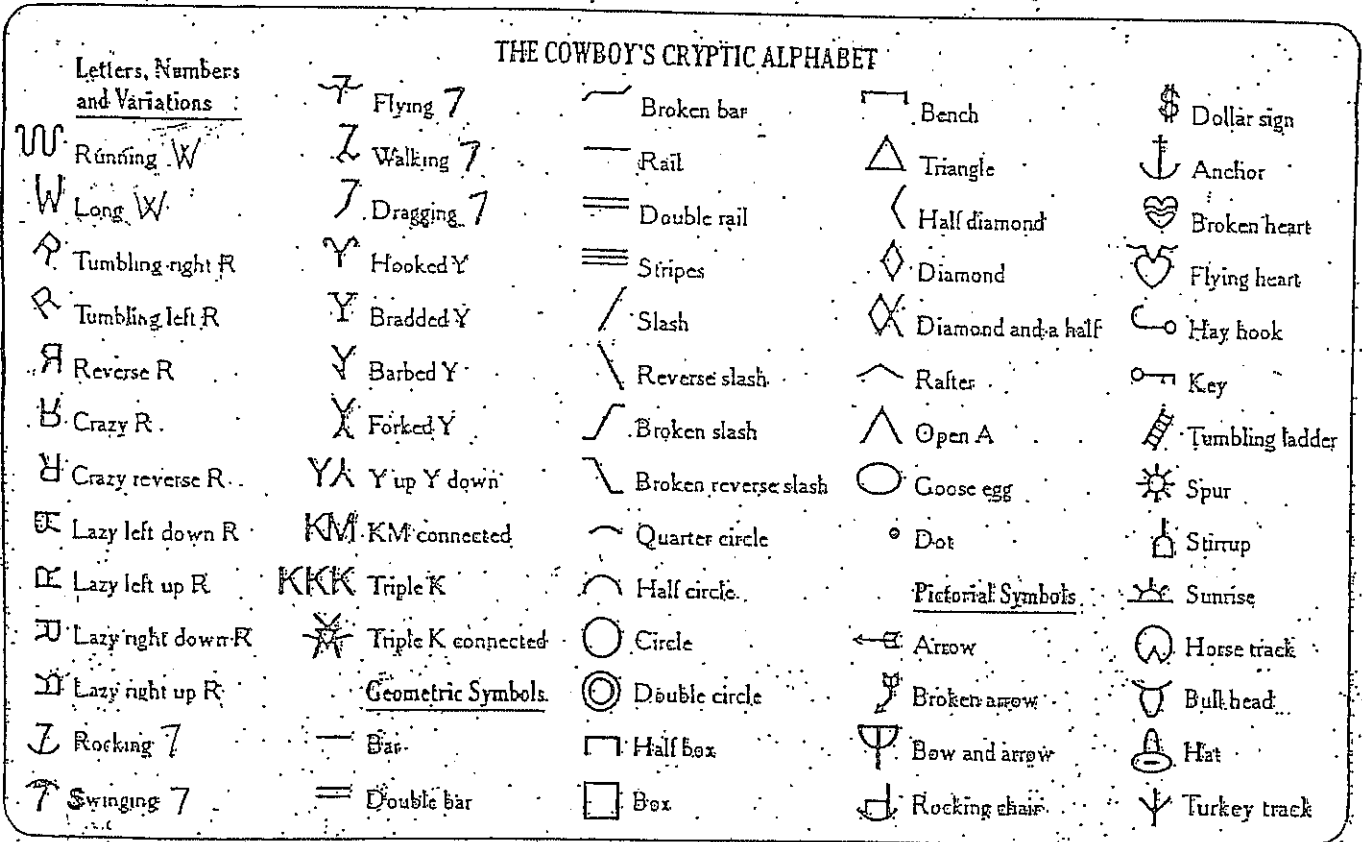 THE COWBOY'S CRYPTIC ALPHABET
Letters, Numbers
and Variations
Running W
Long W
Tumbling right R
Tumbling left R
Reverse R
Crazy R
Crazy reverse R
Lazy left down R
Lazy left up R
Lazy right down R
Lazy right up R
Rocking 7
Swinging 7
Flying 7
Walking 7
Dragging 7
Hooked Y
Bradded Y
Barbed Y
Forked Y
Y up Y down
KM connected
Triple K
Triple K connected
Geometric Symbols
Bar
Double bar
Broken bar
Rail
Double rail
Stripes
Slash
Reverse slash
Broken slash
Broken reverse slash
Quarter circle
Half circle
Circle
Double circle
Half box
Box
Bench
Triangle
Half diamond
Diamond
Diamond and a half
Rafter
Open A
Goose egg
Dot
Pictorial Symbols
Arrow
Broken arrow
Bow and arrow
Rocking chair
Dollar sign
Anchor
Broken heart
Flying heart
Hay hook
Key
Tumbling ladder
Spur
Stirrup
Sunrise
Horse track
Bull head
Hat
Turkey track